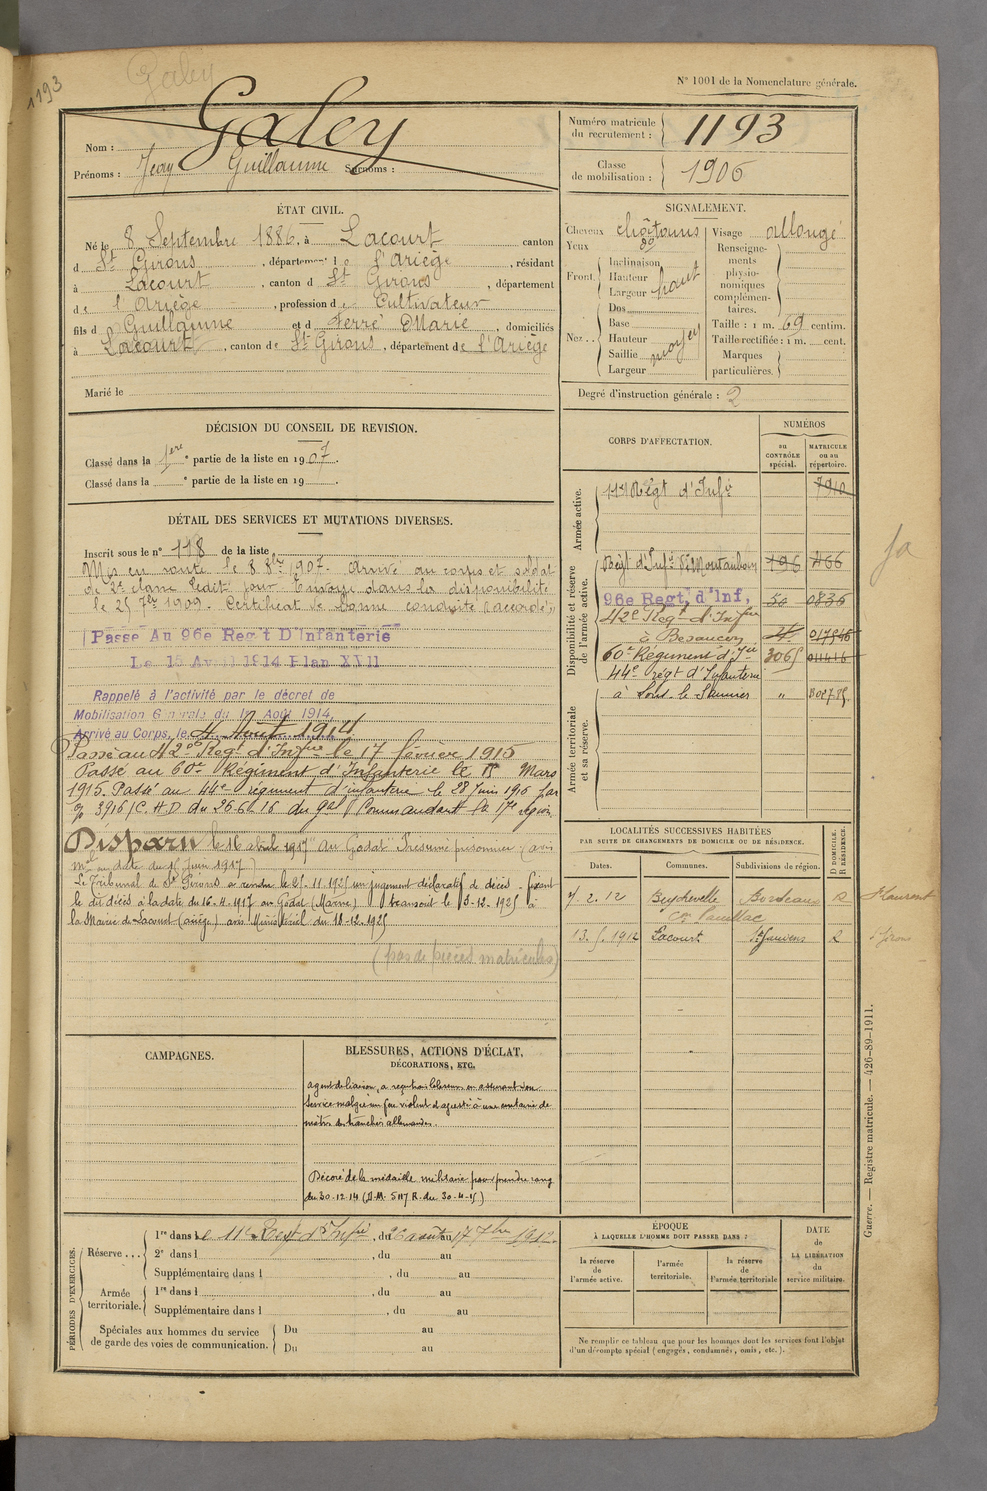 1193
Galey
N° 1001 de la Nomenclature générale.
Nom : Galey
Prénoms : Jean Guillaume Surnoms :
Numéro matricule du recrutement : 1193
Classe de mobilisation : 1906
ÉTAT CIVIL.
Né le 8 Septembre 1886, à Lacourt canton
d St Girons, département de l'Ariège, résidant
à Lacourt, canton d St Girons, département
de l'Ariège, profession de Cultivateur
fils d Guillaume et d Ferré Marie, domiciliés
à Lacourt, canton de St Girons, département de l'Ariège
Marié le
SIGNALEMENT.
Cheveux châtains
Yeux do
Front. Inclinaison
Hauteur haut
Largeur
Nez.. Dos
Base
Hauteur moyen
Saillie
Largeur
Visage allongé
Renseignements physionomiques complémentaires.
Taille : 1 m. 69 centim.
Taille rectifiée : 1 m. cent.
Marques particulières.
Degré d'instruction générale : 2
DÉCISION DU CONSEIL DE REVISION.
Classé dans la 1ere e partie de la liste en 1907.
Classé dans la e partie de la liste en 19 .
DÉTAIL DES SERVICES ET MUTATIONS DIVERSES.
Inscrit sous le n° 118 de la liste
Mis en route le 8 8bre 1907. Arrivé au corps et soldat
de 2e classe ledit jour. Envoyé dans la disponibilité
le 25 7bre 1909. Certificat de Bonne conduite "accordé"
Passé Au 96e Regt D'Infanterie
Le 15 Avril 1914 Plan XVII
Rappelé à l'activité par le décret de
Mobilisation Générale du 1r Août 1914.
Arrivé au Corps, le 4 Août 1914
Passé au 42e Regt d'Infrie le 17 février 1915
Passé au 60e Régiment d'Infanterie le 15 Mars
1915. Passé au 44e régiment d'infanterie le 28 Juin 1916 par
3916/C.H.D du 26-6-16 du gal Commandant la 17e région
Disparu le 16 avril 1917 au Godat Présumé prisonnier (avis
mel en date du 15 Juin 1917)
Le Tribunal de St Girons a rendu le 25.11.1925 un jugement déclaratif de décès fixant
le dit décès à la date du 16.4.1917 au Godat (Marne) transcrit le 3-12-1925 à
la Mairie de Lacourt (ariège) avis Ministériel du 18-12-1925
(pas de pièces matricules)
CORPS D'AFFECTATION.
NUMÉROS
au CONTRÔLE spécial.
MATRICULE ou au répertoire.
Armée active.
Régt d'Infie 7910
Disponibilité et réserve de l'armée active.
Régt d'Infie de Montauban 196 466
96e Regt, d'Inf, 50 0836
42e Regt d'Infrie
à Besançon
60e Régiment d'Ie 3065
44e régt d'Infanterie
à Lons le Saunier "
Armée territoriale et sa réserve.
LOCALITÉS SUCCESSIVES HABITÉES
PAR SUITE DE CHANGEMENTS DE DOMICILE OU DE RÉSIDENCE.
Dates. Communes. Subdivisions de région. D DOMICILE. R RÉSIDENCE.
7.2.12 Beychevelle Bordeaux R St Laurent
con Pauillac
13.5.1912 Lacourt St Gaudens R St Girons
CAMPAGNES.
BLESSURES, ACTIONS D'ÉCLAT, DÉCORATIONS, ETC.
agent de liaison, a reçu trois blessures en assurant son
service malgré un feu violent dirigé à une centaine de
mètres des tranchées allemandes.
Décoré de la médaille militaire pour prendre rang
du 30-12-14 (D.M. 5117 R. du 30-4-15)
PÉRIODES D'EXERCICES.
Réserve... 1re dans le 11e Regt d'Infie, du 26 août au 17 7bre 1912.
2e dans l , du au
Supplémentaire dans l , du au
Armée territoriale. 1re dans l , du au
Supplémentaire dans l , du au
Spéciales aux hommes du service de garde des voies de communication. Du au
Du au
ÉPOQUE
À LAQUELLE L'HOMME DOIT PASSER DANS :
la réserve de l'armée active.
l'armée territoriale.
la réserve de l'armée territoriale
DATE de LA LIBÉRATION du service militaire.
Ne remplir ce tableau que pour les hommes dont les services font l'objet
d'un décompte spécial (engagés, condamnés, omis, etc.).
Guerre. — Registre matricule. — 426-89-1911.